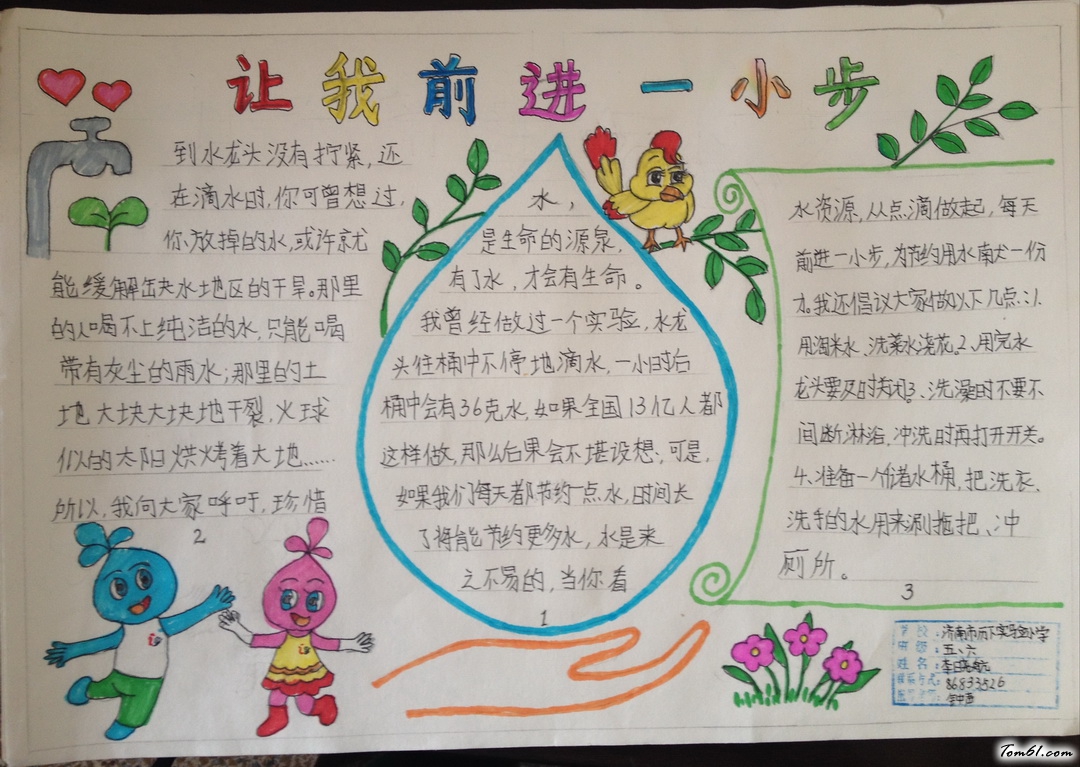 让我前进一小步
水，
是生命的源泉，
有了水，才会有生命。
我曾经做过一个实验，水龙
头往桶中不停地滴水，一小时后
桶中会有36克水，如果全国13亿人都
这样做，那么后果会不堪设想，可是，
如果我们每天都节约一点水，时间长
了将能节约更多水，水是来
之不易的，当你看
1
到水龙头没有拧紧，还
在滴水时，你可曾想过，
你放掉的水，或许就
能缓解缺水地区的干旱。那里
的人喝不上纯洁的水，只能喝
带有灰尘的雨水；那里的土
地大块大块地干裂，火球
似的太阳烘烤着大地……
所以，我向大家呼吁，珍惜
2
水资源，从点滴做起，每天
前进一小步，为节约用水献一份
力。我还倡议大家做以下几点：1、
用淘米水、洗菜水浇花。2、用完水
龙头要及时关闭3、洗澡时不要不
间断淋浴，冲洗时再打开开关。
4、准备一个储水桶，把洗衣、
洗手的水用来涮拖把、冲
厕所。
3
学校：济南市历下实验小学
班级：五、六
姓名：李
联系方式：86833526
Tom61.com